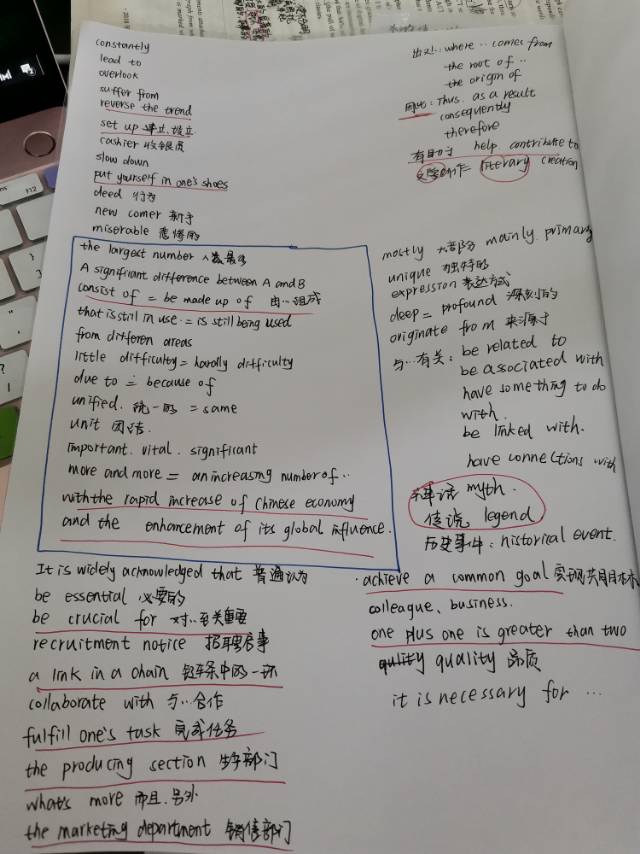 constantly
lead to
overlook
suffer from
reverse the trend
set up 建立.设立
cashier 收银员
slow down
put yourself in one's shoes
deed 行为
new comer 新手
miserable 悲惨的
the largest number 人数最多
A significant difference between A and B
consist of = be made up of 由…组成
that is still in use. = is still being used
from differen areas
little difficulty = hardly difficulty
due to = because of
unified. 统一的 = same
unit 团结.
important. vital. significant
more and more = an increasing number of..
with the rapid increase of Chinese economy
and the enhancement of its global influence.
It is widely acknowledged that 普遍认为
be essential 必要的
be crucial for 对..至关重要
recruitment notice 招聘启事
a link in a chain 链条中的一环
collaborate with 与…合作
fulfill one's task 完成任务
the producing section 生产部门
what's more 而且.另外
the marketing department 销售部门
出处: where .. comes from
the root of ..
the origin of
因此: Thus. as a result
consequently
therefore
有助于 help contribute to
文学创作 literary creation
mostly 大部分 mainly. primary
unique 独特的
expression 表达方式
deep = profound 深刻的
originate from 来源于
与…有关: be related to
be associated with
have something to do
with.
be linked with.
have connections with
神话 myth.
传说 legend
历史事件: historical event.
achieve a common goal 实现共同目标
colleague、business.
one plus one is greater than two
quality 品质
it is necessary for …